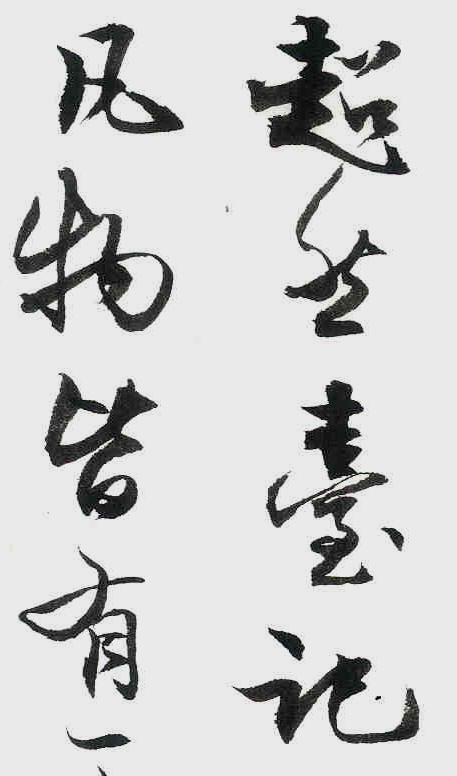 超然臺記
凡物皆有